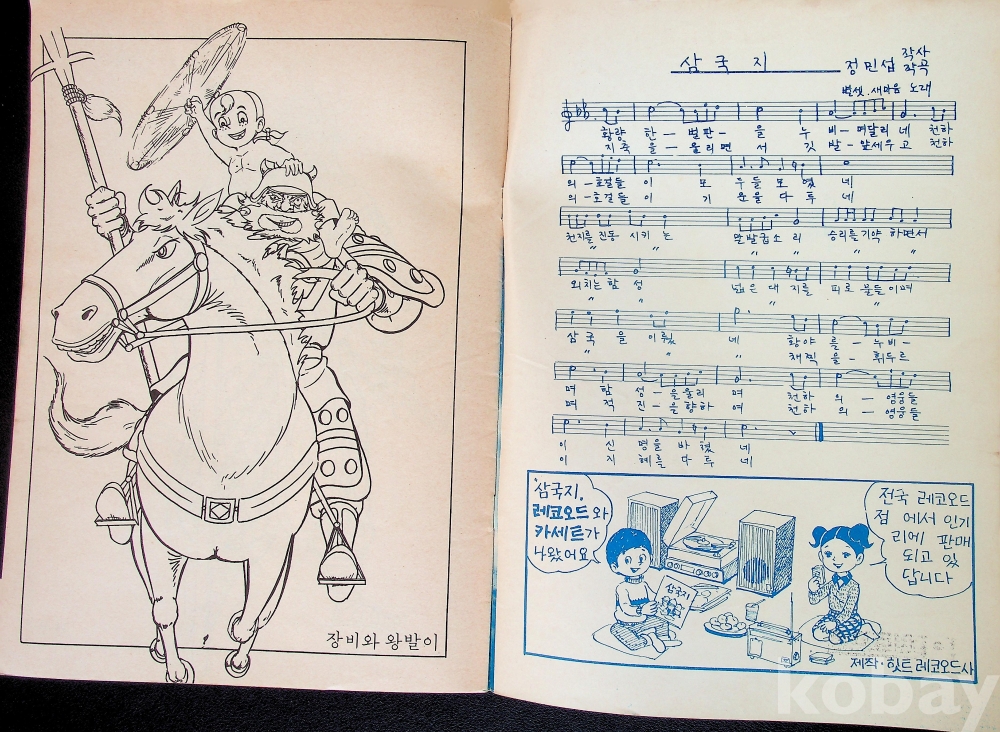 장비와 왕발이
삼국지
정민섭 작사
작곡
별셋.새마음 노래
황량 한 - 벌판 - 을 누 비 - 며달리 네 천하
지축 을 - 울리면 서 깃 발 - 앞세우 고 천하
의 - 호걸들 이 모 두들 모 였 네
의 - 호걸들 이 기 운을 다 투 네
천지를 진동 시키 는 말발굽소 리 승리를기약 하면서
〃 〃 〃 〃 〃 〃
외치는 함 성 넓은 대 지를 피로 물들 이며
〃 〃 〃 〃 〃
삼 국 을 이뤘 네 황야 를 - 누비 -
〃 〃 〃 채찍 을 - 휘두르
며 함 성 - 을울리 며 천하 의 - 영웅들
며 적 진 - 을향하 여 천하 의 - 영웅들
이 신 명을 바 쳤 네
이 지 혜를 다 투 네
삼국지.
레코오드와
카세트가
나왔어요
전국 레코오드
점 에서 인기
리에 판매
되고 있
답니다
삼국지
제작·힛트레코오드사
kobay